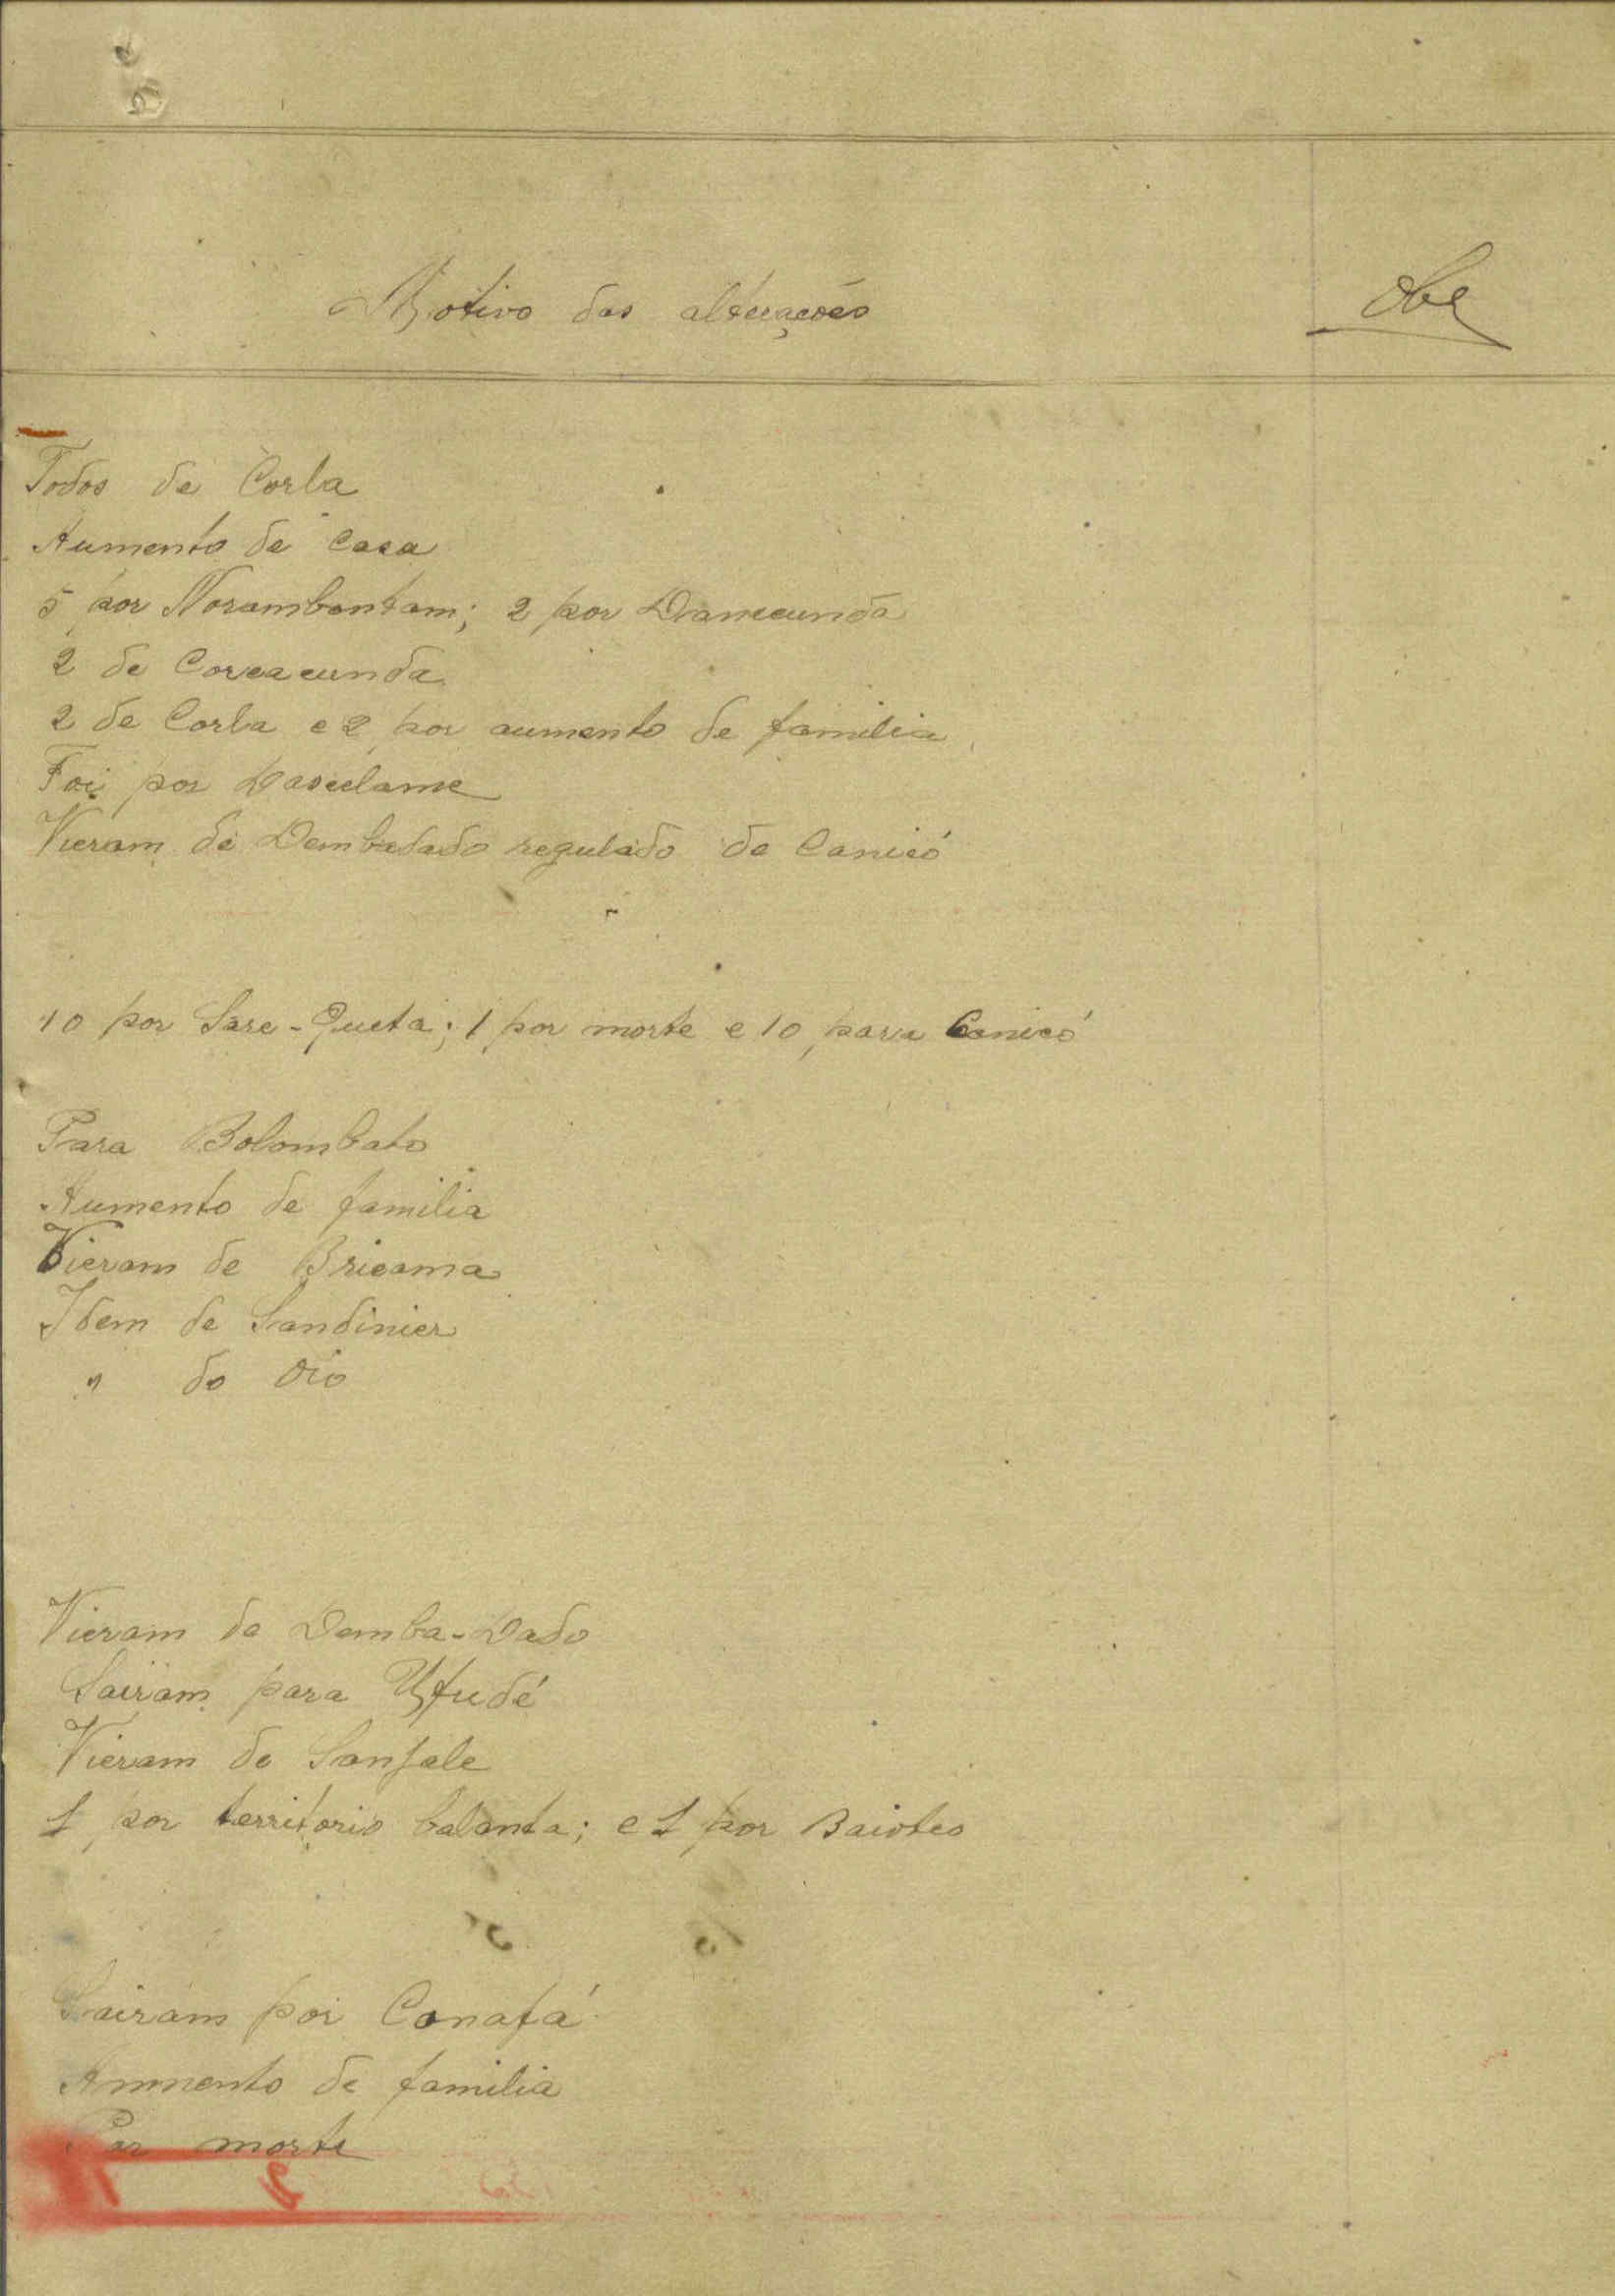 Motivo das alterações
Obs
Todos de Corla
Aumento de casa
5 por Norambontam; 2 por Dianecunda
2 de Coreacunda
2 de Corla e 2 por aumento de familia
Foi por
Vieram de Dembadado regulado de Canicó
10 por Sare-Queta; 1 por morte e 10 para Canicó
Para Bolombato
Aumento de familia
Vieram de Bricama
Idem de Sandinier
" do Oio
Vieram de Demba-Dado
Sairam para
Vieram de Sansale
1 por territorio balanta; e 1 por Baiotes
Sairam por Canafá
Aumento de familia
Por morte